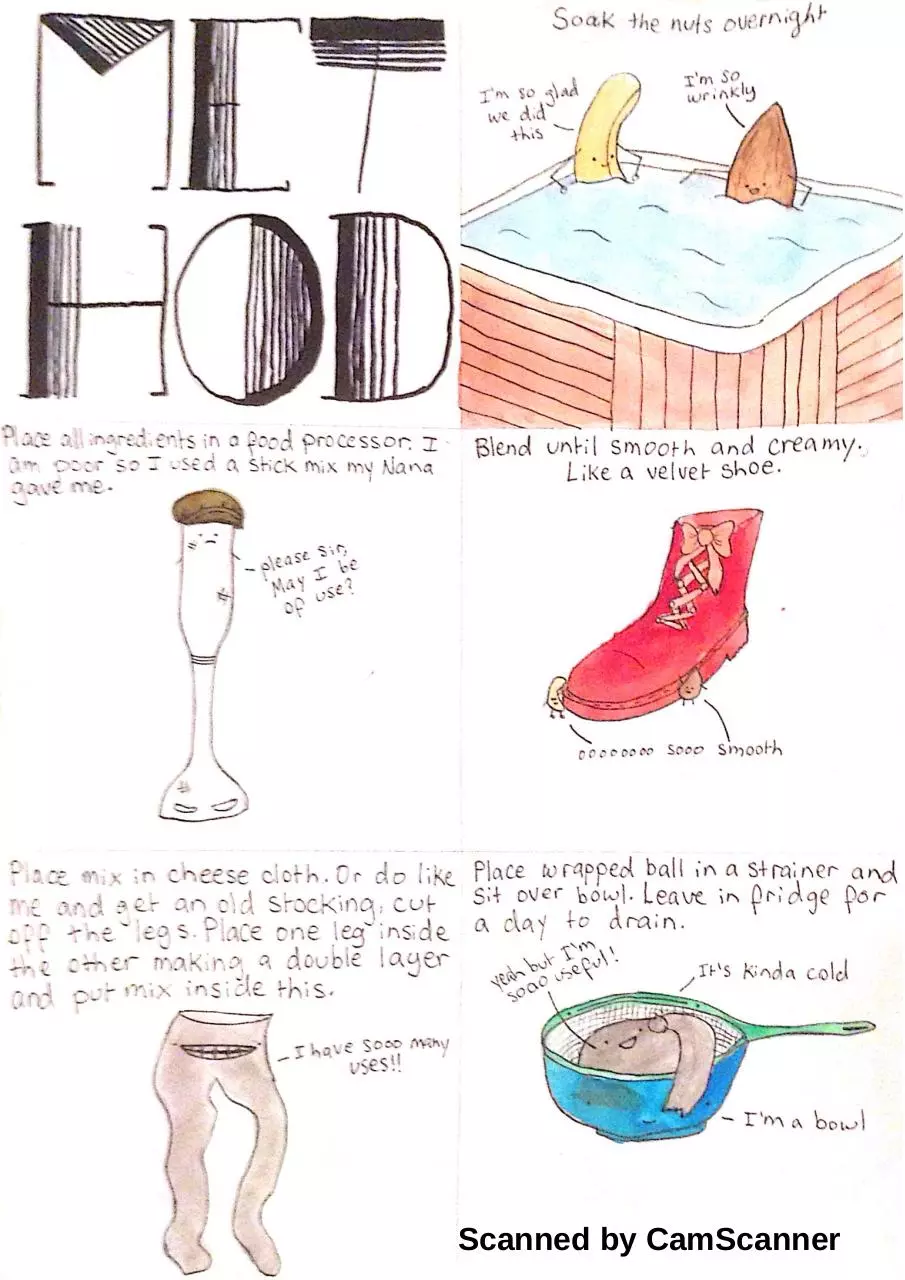 MET
HOD
Soak the nuts overnight
I'm so glad
we did
this
I'm so
wrinkly
Place all ingredients in a food processor. I
am poor so I used a stick mix my Nana
gave me.
please sir,
May I be
of use?
Blend until smooth and creamy.
Like a velvet shoe.
oooooooo sooo smooth
Place mix in cheese cloth. Or do like
me and get an old stocking, cut
off the legs. Place one leg inside
the other making a double layer
and put mix inside this.
I have sooo many
uses!!
Place wrapped ball in a strainer and
sit over bowl. Leave in fridge for
a day to drain.
yeah but I'm
sooo useful!
It's kinda cold
I'm a bowl
Scanned by CamScanner